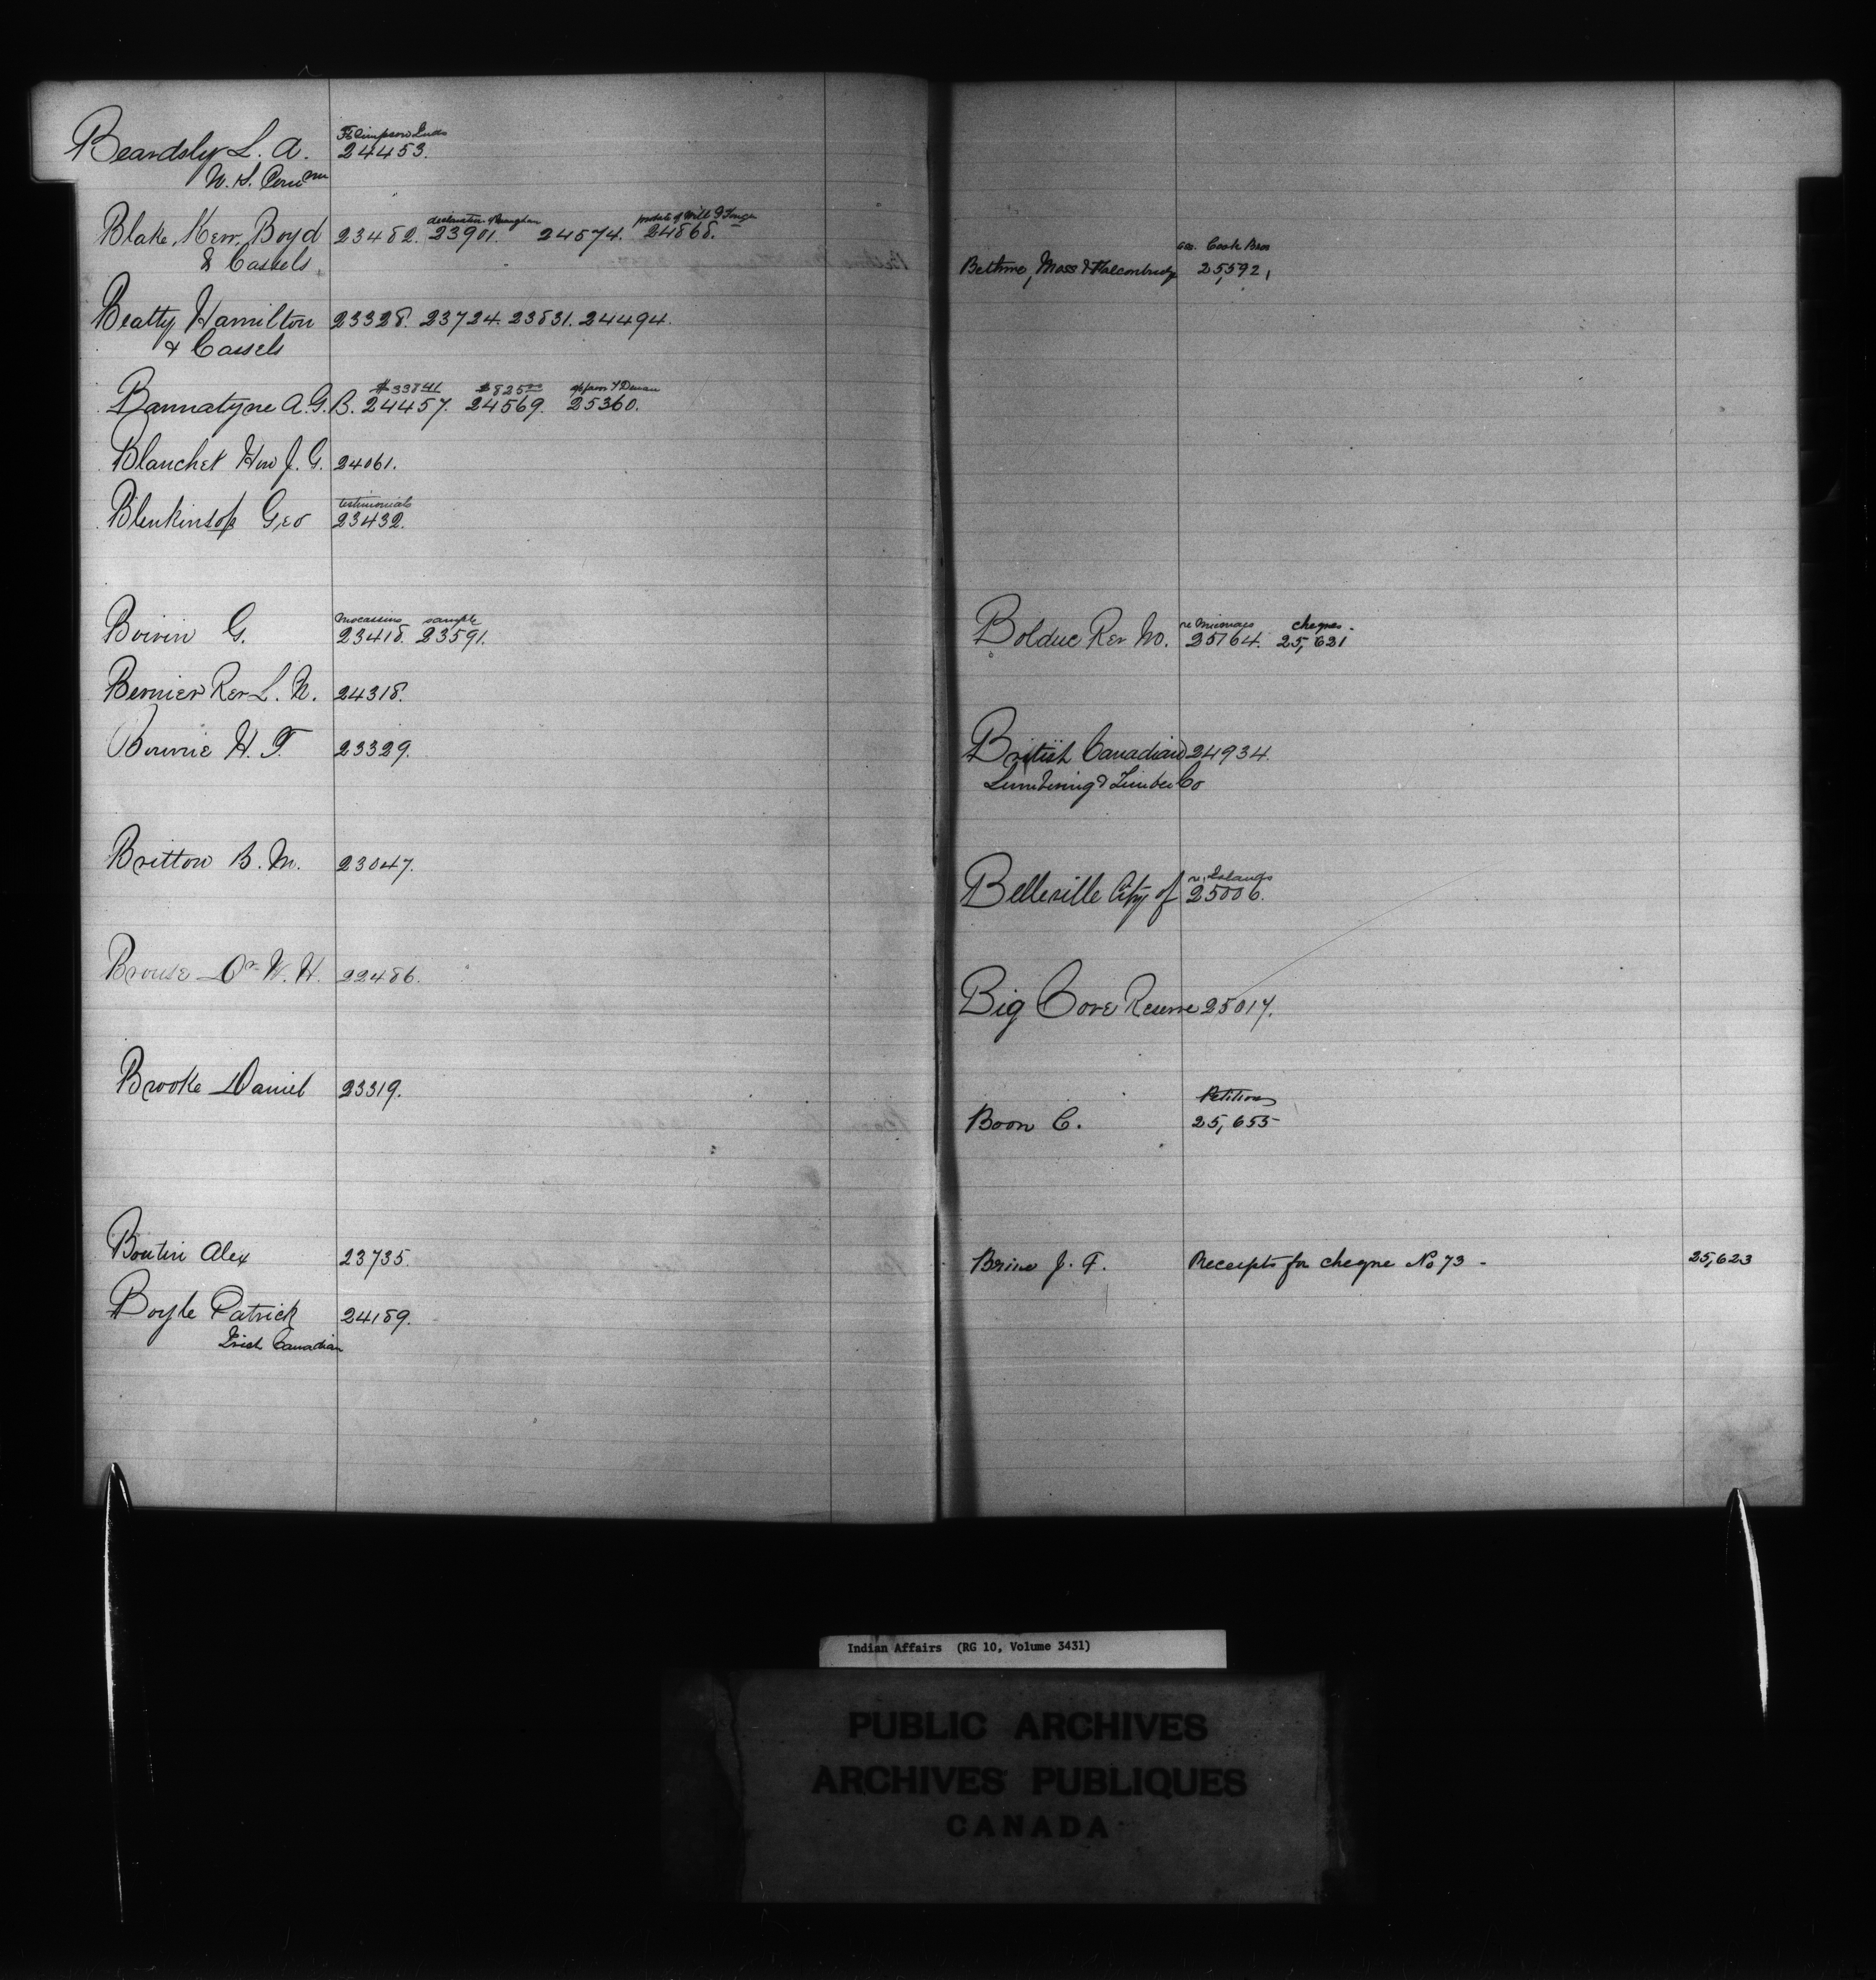 Beardsly L. A. 24453.
Ft Simpson Inds
Blake, Kerr, Boyd 23482. 23901. 24574. 24868.
& Cassels
declaration probate of Will
Beatty Hamilton 23328. 23724. 23831. 24494.
& Cassels
$33841 $82500
Bannatyne A. G. B. 24457. 24569. 25360.
Blanchet Hon J. G. 24061.
testimonials
Blenkinsop Geo 23432.
Mocassins sample
Boivin G. 23418. 23591.
Bernier Rev L. N. 24318.
23329.
Britton B. M. 23047.
Brouse Dr W. H. 22486.
Brooke Daniel 23319.
Boutin Alex 23735.
Boyle Patrick 24189.
Irish Canadian
Cook Bros
Bethune, Moss & Falconbridge 25,592,
re Micmacs cheques.
Bolduc Rev 25764. 25,621
British Canadian 24934.
Lumbering & Timber Co
re Islands
Belleville City of 25006.
Big Cove Reserve 25017.
Petition
Boon C. 25,655
Brine J. F. Receipts for cheque No 73 - 25,623
Indian Affairs (RG 10, Volume 3431)
PUBLIC ARCHIVES
ARCHIVES PUBLIQUES
CANADA